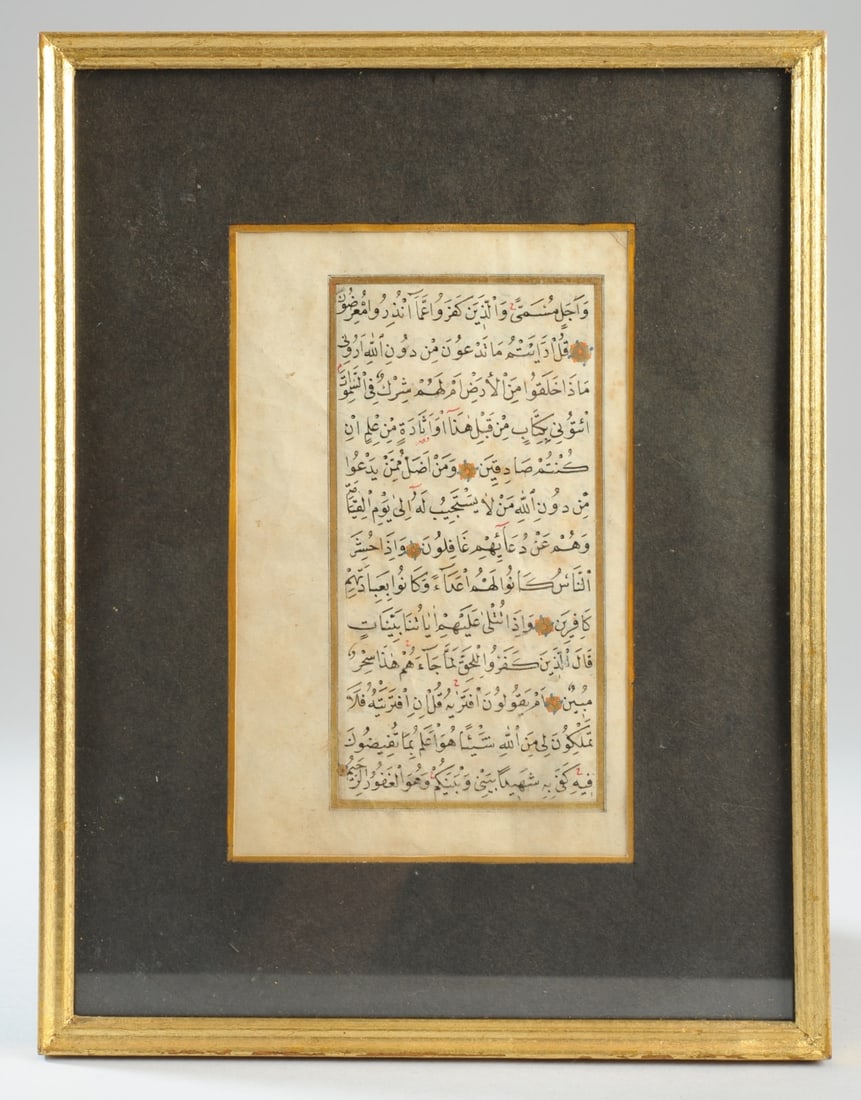 وَاَجَلٍ مُسَمًّى وَالَّذِينَ كَفَرُوا عَمَّا اُنْذِرُوا مُعْرِضُونَ
قُلْ اَرَاَيْتُمْ مَا تَدْعُونَ مِنْ دُونِ اللّٰهِ اَرُونِي
مَاذَا خَلَقُوا مِنَ الْاَرْضِ اَمْ لَهُمْ شِرْكٌ فِي السَّمٰوَاتِ
ائْتُونِي بِكِتَابٍ مِنْ قَبْلِ هٰذَا اَوْ اَثَارَةٍ مِنْ عِلْمٍ اِنْ
كُنْتُمْ صَادِقِينَ وَمَنْ اَضَلُّ مِمَّنْ يَدْعُوا
مِنْ دُونِ اللّٰهِ مَنْ لَا يَسْتَجِيبُ لَهُ اِلٰى يَوْمِ الْقِيٰمَةِ
وَهُمْ عَنْ دُعَائِهِمْ غَافِلُونَ وَاِذَا حُشِرَ
النَّاسُ كَانُوا لَهُمْ اَعْدَاءً وَكَانُوا بِعِبَادَتِهِمْ
كَافِرِينَ وَاِذَا تُتْلٰى عَلَيْهِمْ اٰيَاتُنَا بَيِّنَاتٍ
قَالَ الَّذِينَ كَفَرُوا لِلْحَقِّ لَمَّا جَاءَهُمْ هٰذَا سِحْرٌ
مُبِينٌ اَمْ يَقُولُونَ افْتَرٰيهُ قُلْ اِنِ افْتَرَيْتُهُ فَلَا
تَمْلِكُونَ لِي مِنَ اللّٰهِ شَيْئًا هُوَ اَعْلَمُ بِمَا تُفِيضُونَ
فِيهِ كَفٰى بِهِ شَهِيدًا بَيْنِي وَبَيْنَكُمْ وَهُوَ الْغَفُورُ الرَّحِيمُ